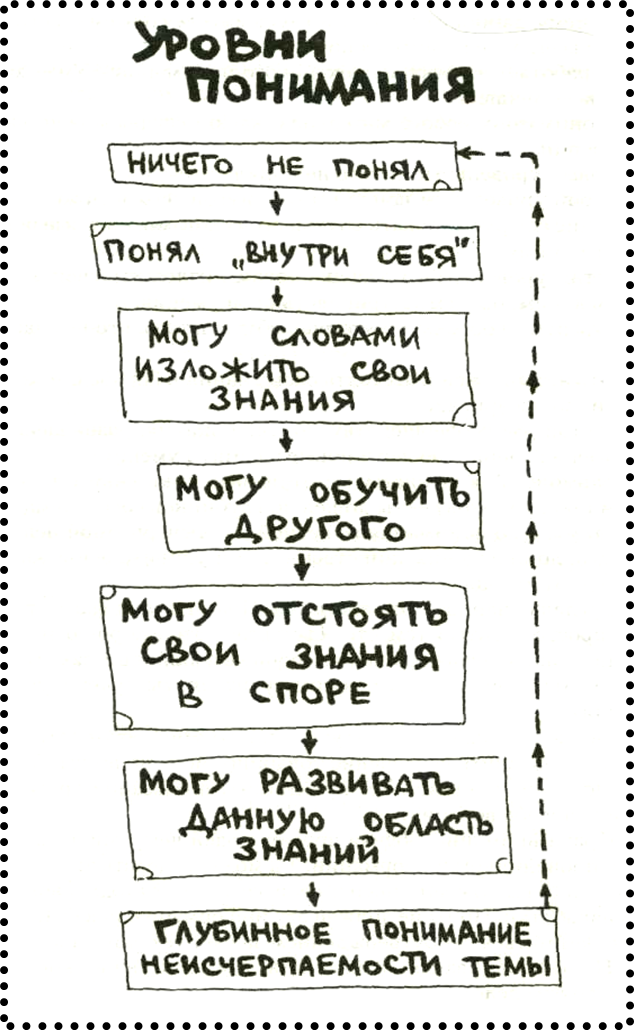 УРОВНИ
ПОНИМАНИЯ
НИЧЕГО НЕ ПОНЯЛ
ПОНЯЛ „ВНУТРИ СЕБЯ"
МОГУ СЛОВАМИ
ИЗЛОЖИТЬ СВОИ
ЗНАНИЯ
МОГУ ОБУЧИТЬ
ДРУГОГО
МОГУ ОТСТОЯТЬ
СВОИ ЗНАНИЯ
В СПОРЕ
МОГУ РАЗВИВАТЬ
ДАННУЮ ОБЛАСТЬ
ЗНАНИЙ
ГЛУБИННОЕ ПОНИМАНИЕ
НЕИСЧЕРПАЕМОСТИ ТЕМЫ